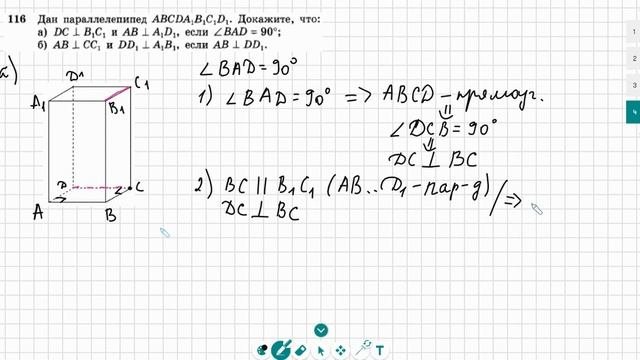 116 Дан параллелепипед ABCDA₁B₁C₁D₁. Докажите, что:
а) DC ⊥ B₁C₁ и AB ⊥ A₁D₁, если ∠BAD = 90°;
б) AB ⊥ CC₁ и DD₁ ⊥ A₁B₁, если AB ⊥ DD₁.
а)
D₁
C₁
A₁
B₁
D
C
A
B
∠BAD = 90°
1) ∠BAD = 90° => ABCD – прямоуг.
⇓
∠DCB = 90°
⇓
DC ⊥ BC
2) BC || B₁C₁ (AB..D₁ – пар-д) / =>
DC ⊥ BC
1
2
3
4
T